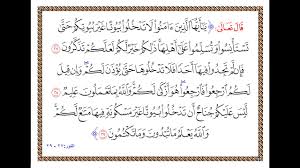 قال تعالى: ﴿ يَٰٓأَيُّهَا ٱلَّذِينَ ءَامَنُوا۟ لَا تَدْخُلُوا۟ بُيُوتًا غَيْرَ بُيُوتِكُمْ حَتَّىٰ
تَسْتَأْنِسُوا۟ وَتُسَلِّمُوا۟ عَلَىٰٓ أَهْلِهَا ذَٰلِكُمْ خَيْرٌ لَّكُمْ لَعَلَّكُمْ تَذَكَّرُونَ ٢٧
فَإِن لَّمْ تَجِدُوا۟ فِيهَآ أَحَدًا فَلَا تَدْخُلُوهَا حَتَّىٰ يُؤْذَنَ لَكُمْ وَإِن قِيلَ
لَكُمُ ٱرْجِعُوا۟ فَٱرْجِعُوا۟ هُوَ أَزْكَىٰ لَكُمْ وَٱللَّهُ بِمَا تَعْمَلُونَ عَلِيمٌ ٢٨
لَّيْسَ عَلَيْكُمْ جُنَاحٌ أَن تَدْخُلُوا۟ بُيُوتًا غَيْرَ مَسْكُونَةٍ فِيهَا مَتَٰعٌ لَّكُمْ
وَٱللَّهُ يَعْلَمُ مَا تُبْدُونَ وَمَا تَكْتُمُونَ ٢٩ ﴾
النور: ٢٧ - ٢٩